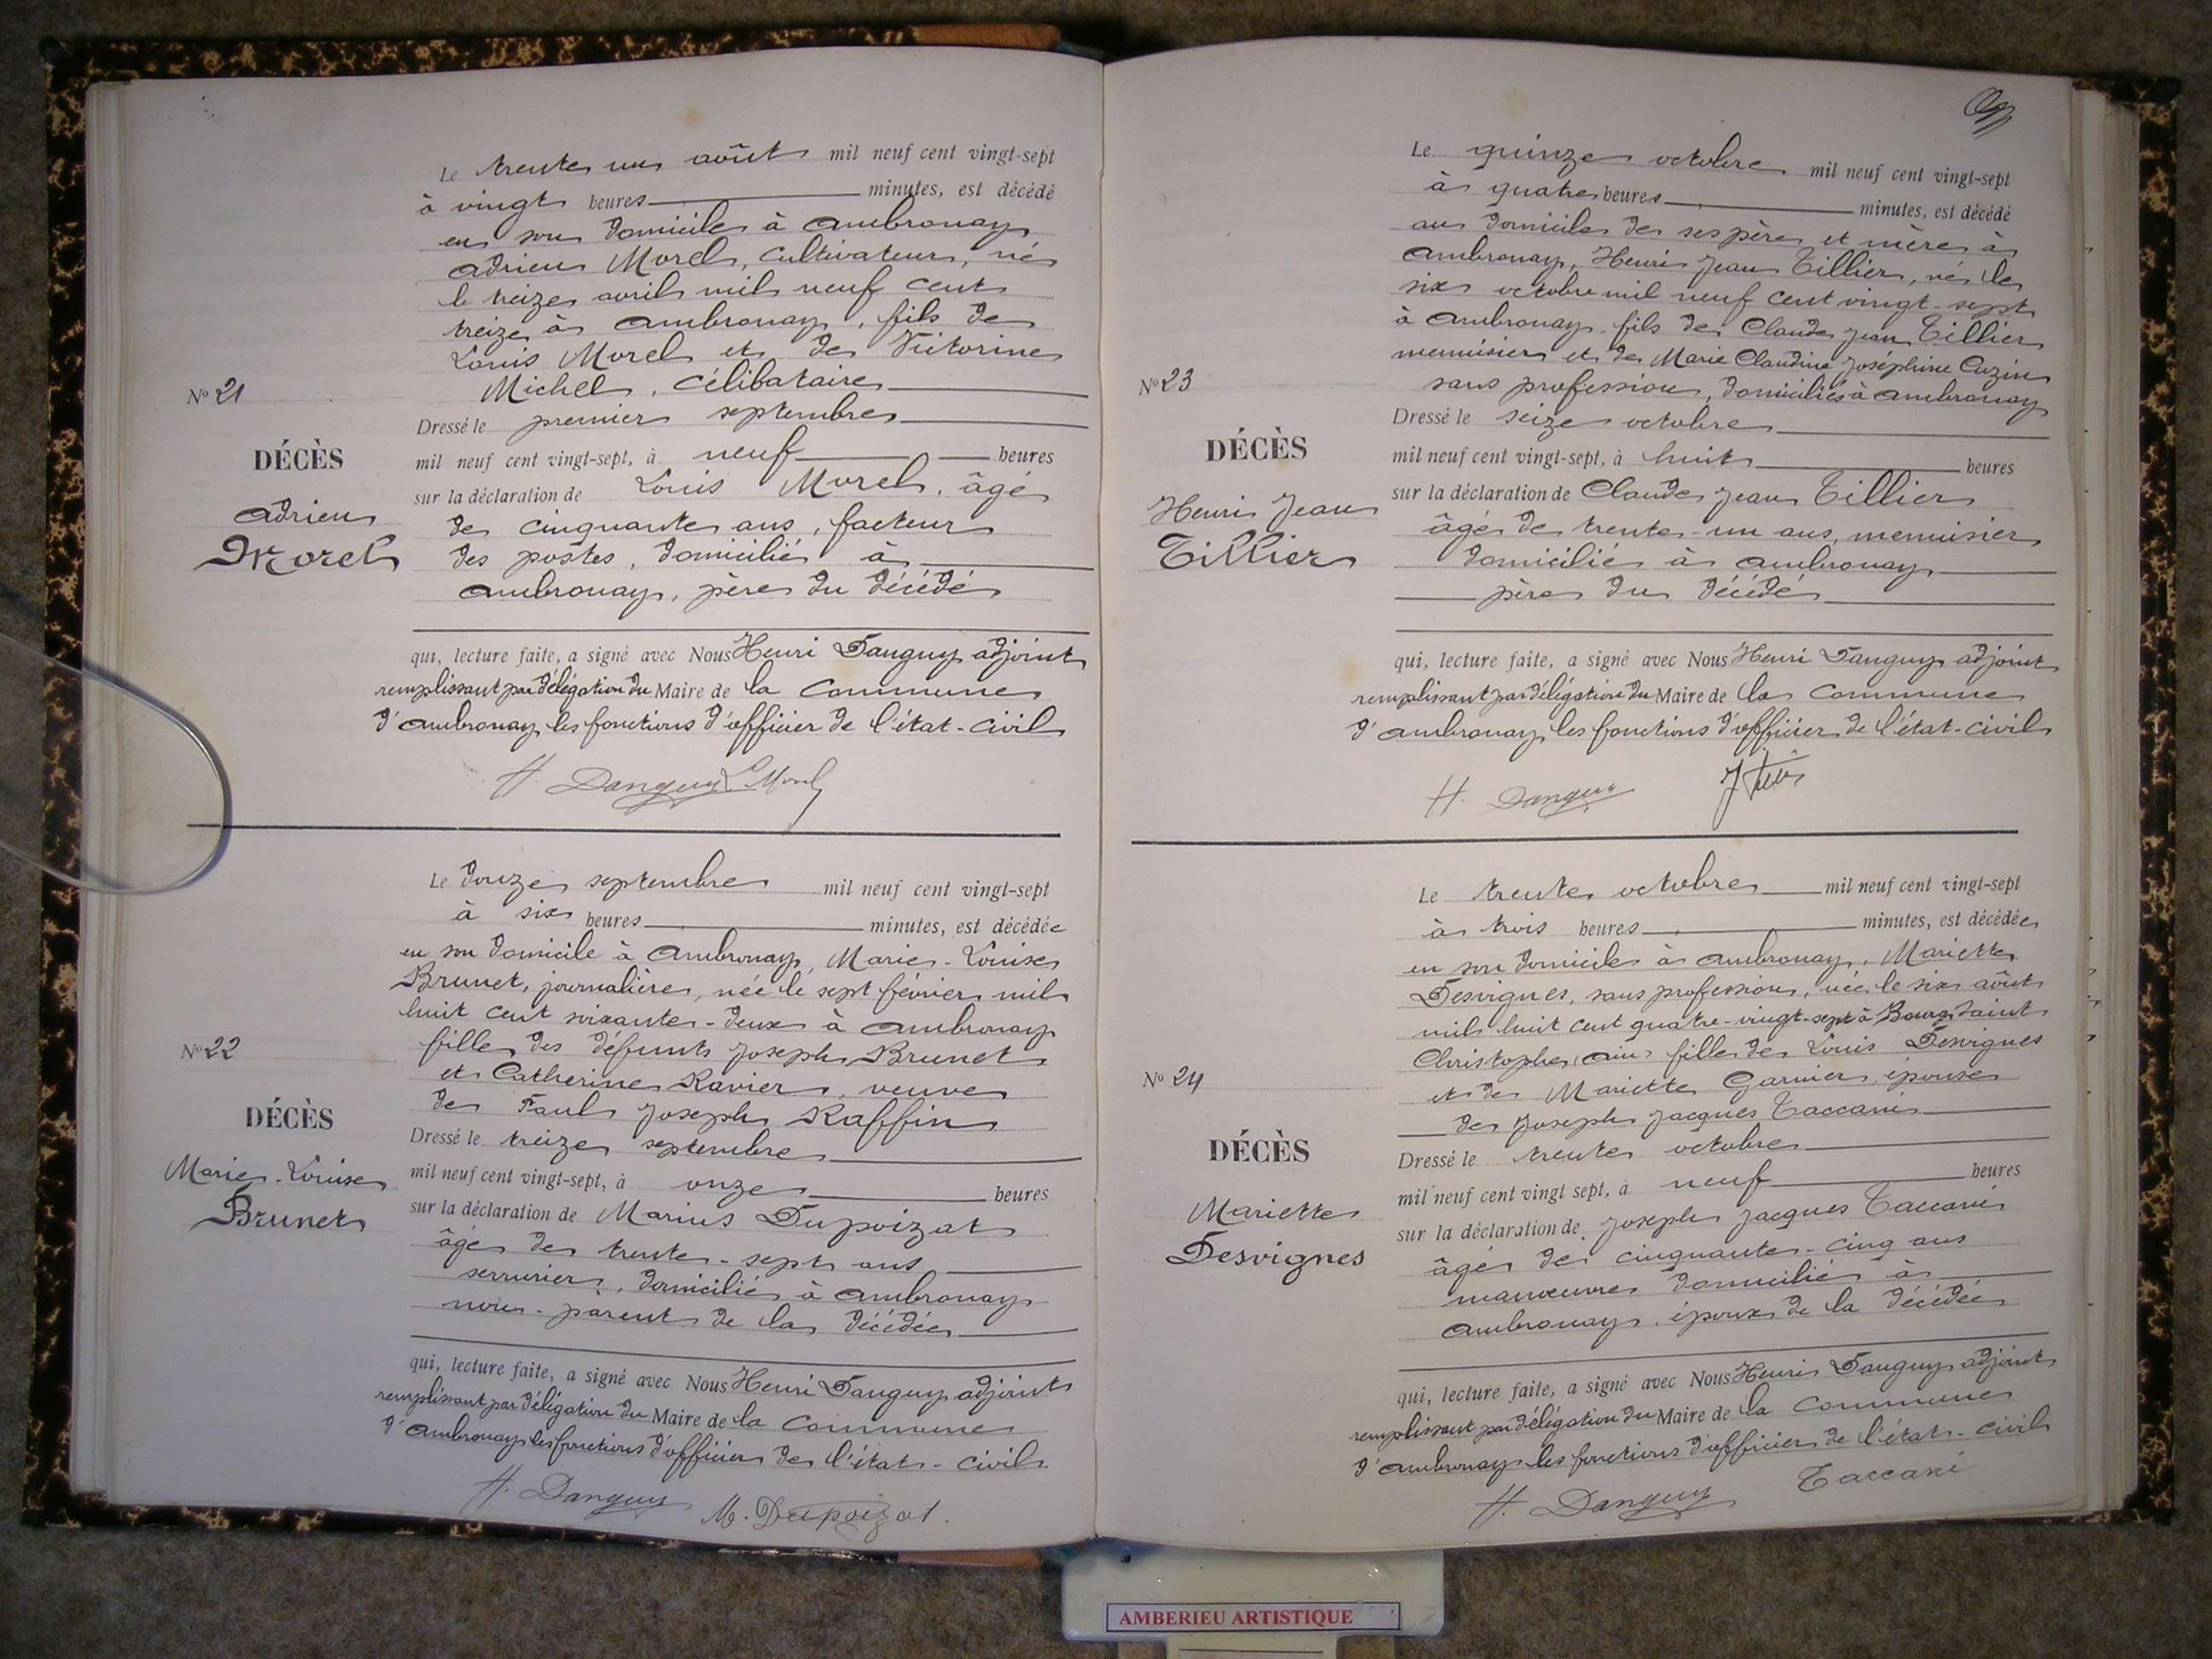 Le trente un août mil neuf cent vingt-sept
à vingt heures minutes, est décédé
en son domicile à Ambronay
Adrien Morel, cultivateur, né
le treize avril mil neuf cent
treize à Ambronay, fils de
Louis Morel et de Victorine
Michel, célibataire
Dressé le premier septembre
mil neuf cent vingt-sept, à neuf heures
sur la déclaration de Louis Morel, âgé
de cinquante ans, facteur
des postes, domicilié à
Ambronay, père du décédé
qui, lecture faite, a signé avec Nous Henri Danguy adjoint
remplissant par délégation du Maire de la Commune
d'Ambronay les fonctions d'officier de l'état-civil
H. Danguy L Morel
No 21
DÉCÈS
Adrien
Morel
Le douze septembre mil neuf cent vingt-sept
à six heures minutes, est décédée
en son domicile à Ambronay, Marie-Louise
Brunet, journalière, née le sept février mil
huit cent soixante-deux à Ambronay
fille des défunts Joseph Brunet
et Catherine Ravier, veuve
de Paul Joseph Raffin
Dressé le treize septembre
mil neuf cent vingt-sept, à onze heures
sur la déclaration de Marius Dupoizat
âgé de trente-sept ans
serrurier, domicilié à Ambronay
non-parent de la décédée
qui, lecture faite, a signé avec Nous Henri Danguy adjoint
remplissant par délégation du Maire de la Commune
d'Ambronay les fonctions d'officier de l'état-civil.
H. Danguy M. Dupoizat.
No 22
DÉCÈS
Marie-Louise
Brunet
Le quinze octobre mil neuf cent vingt-sept
à quatre heures minutes, est décédé
au domicile de ses père et mère à
Ambronay, Henri Jean Tillier, né le
six octobre mil neuf cent vingt-sept
à Ambronay, fils de Claude Jean Tillier
menuisier et de Marie Claudine Joséphine Cuzin
sans profession, domiciliés à Ambronay
Dressé le seize octobre
mil neuf cent vingt-sept, à huit heures
sur la déclaration de Claude Jean Tillier
âgé de trente-un ans, menuisier
domicilié à Ambronay
père du décédé
qui, lecture faite, a signé avec Nous Henri Danguy adjoint
remplissant par délégation du Maire de la Commune
d'Ambronay les fonctions d'officier de l'état-civil
H. Danguy
No 23
DÉCÈS
Henri Jean
Tillier
Le trente octobre mil neuf cent vingt-sept
à trois heures minutes, est décédée
en son domicile à Ambronay, Mariette
Desvignes, sans profession, née le six août
mil huit cent quatre-vingt-sept à Bourg Saint
Christophe, (Ain) fille de Louis Desvignes
et de Mariette Garnier, épouse
de Joseph Jacques Taccani
Dressé le trente octobre
mil neuf cent vingt sept, à neuf heures
sur la déclaration de Joseph Jacques Taccani
âgé de cinquante-cinq ans
manœuvre domicilié à
Ambronay, époux de la décédée
qui, lecture faite, a signé avec Nous Henri Danguy adjoint
remplissant par délégation du Maire de la Commune
d'Ambronay les fonctions d'officier de l'état-civil
H. Danguy Taccani
No 24
DÉCÈS
Mariette
Desvignes
AMBERIEU ARTISTIQUE